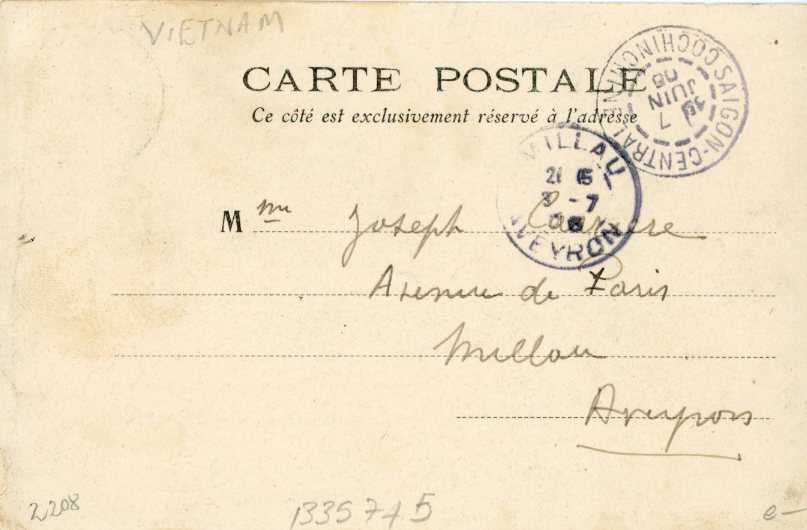 VIETNAM
CARTE POSTALE
Ce côté est exclusivement réservé à l'adresse
SAIGON-CENTRAL COCHINCHINE
7
JUIN
06
MILLAU
3 -7
06
AVEYRON
M me Joseph
Avenue de Paris
Millau
Aveyron
2208
133575
e-